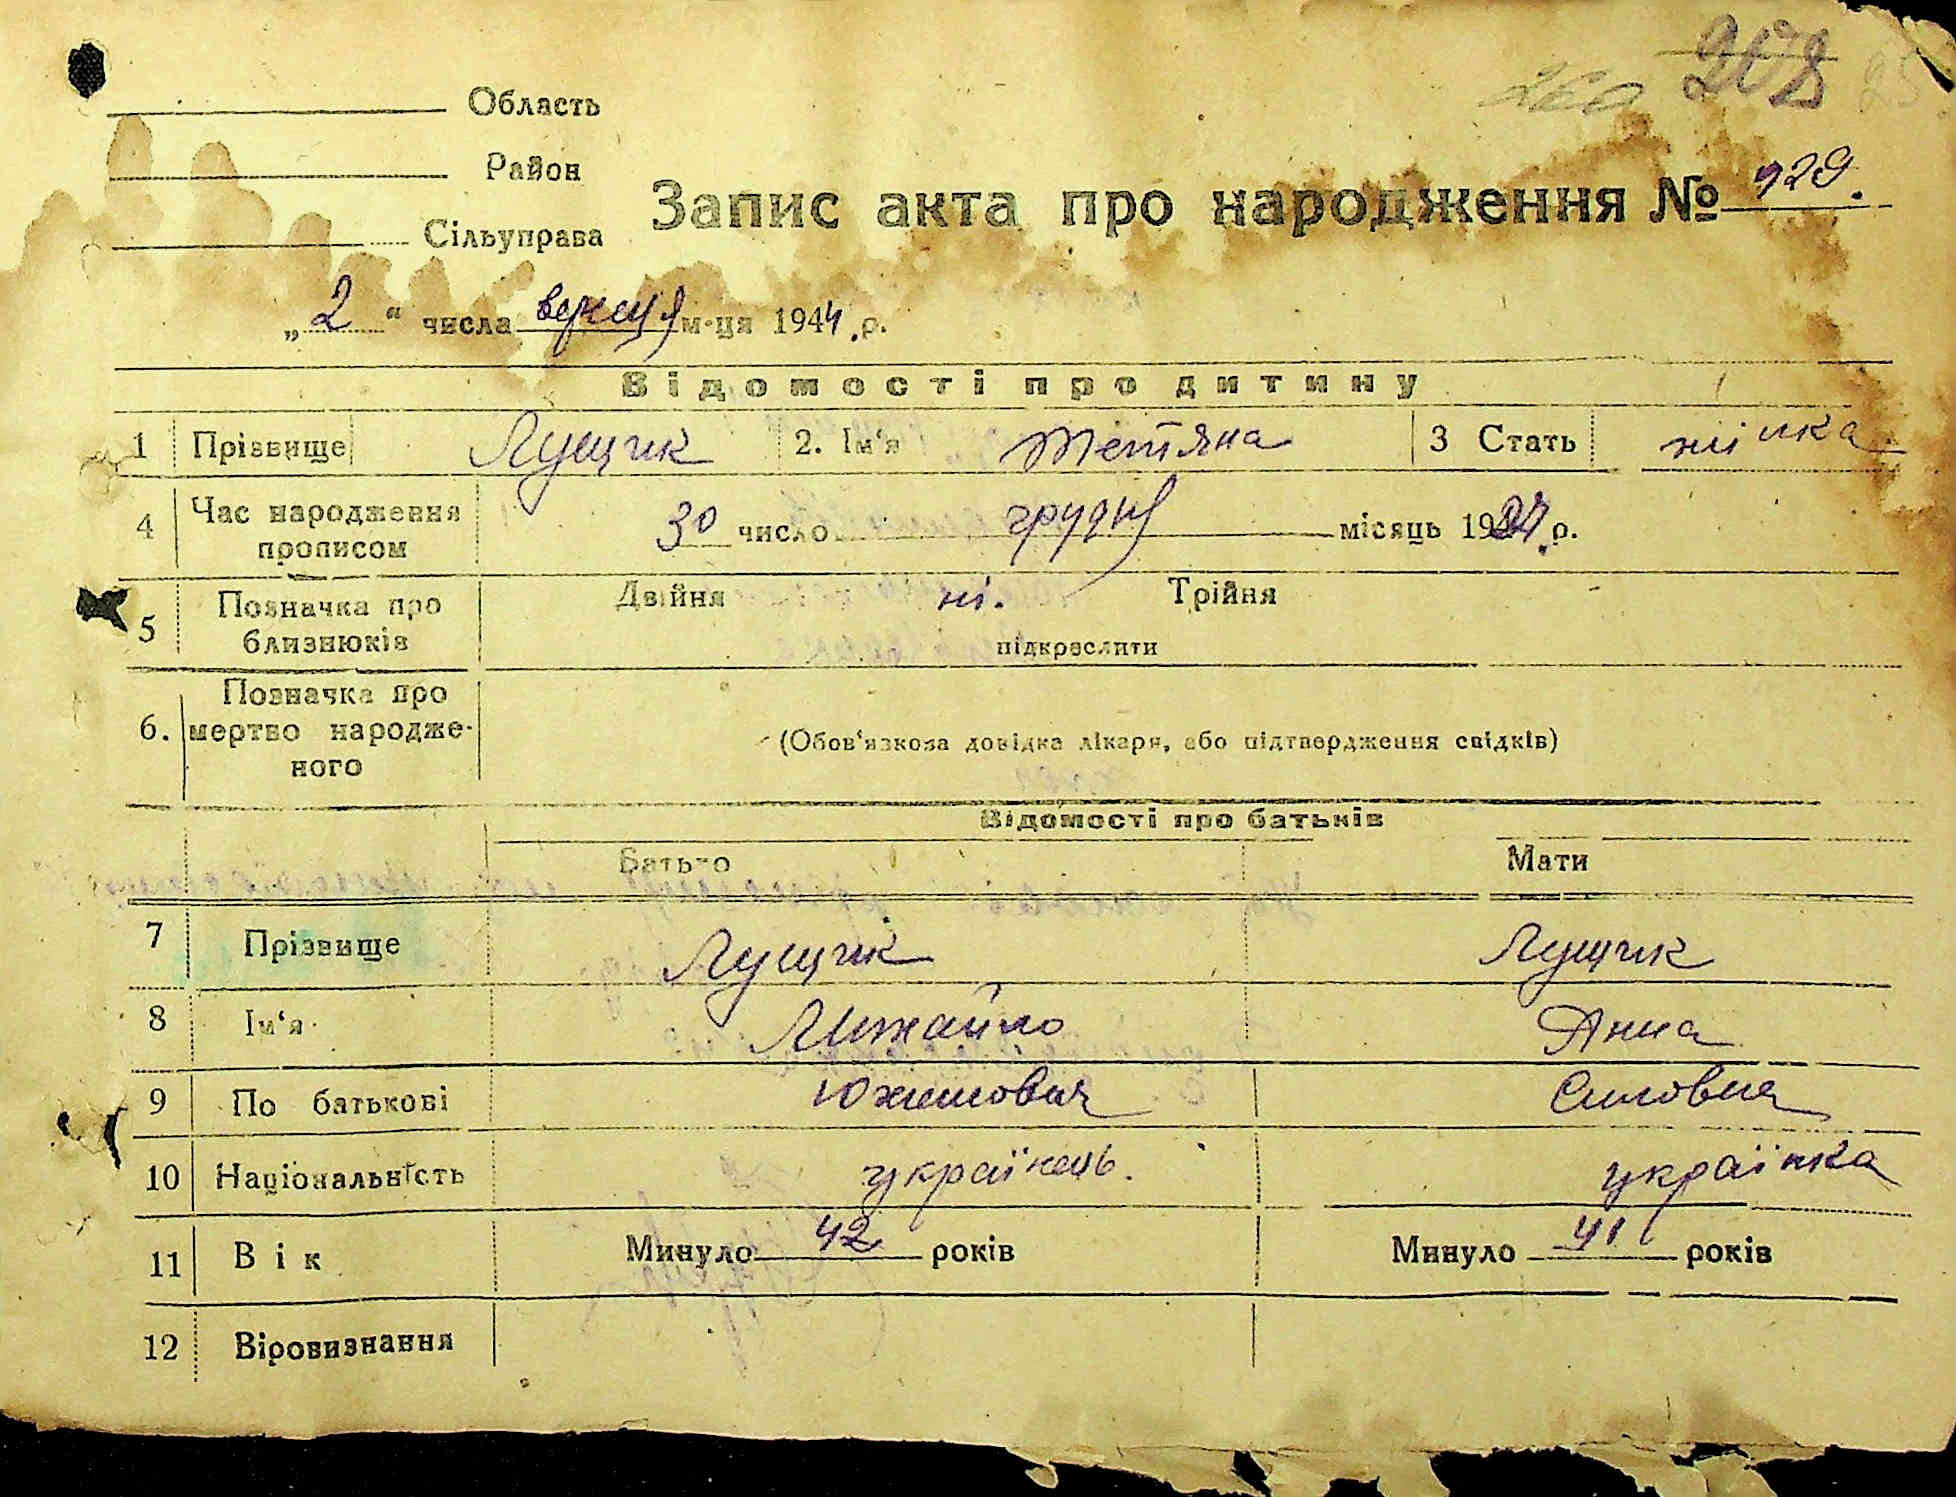 260 278 25
Область
Район
Сільуправа
Запис акта про народження № 929.
„2" числа вересня м-ця 1944.р.
Відомості про дитину
1 Прізвище Лущик 2. Ім'я Тетяна 3 Стать жінка
4 Час народження прописом 30 число грудня місяць 1927.р.
5 Позначка про близнюків Двійня ні. Трійня
підкреслити
6. Позначка про мертво народженого (Обов'язкова довідка лікаря, або підтвердження свідків)
Відомості про батьків
Батько Мати
7 Прізвище Лущик Лущик
8 Ім'я Михайло Анна
9 По батькові Юхимович Силовна
10 Національність українець. українка
11 Вік Минуло 42 років Минуло 41 років
12 Віровизнання